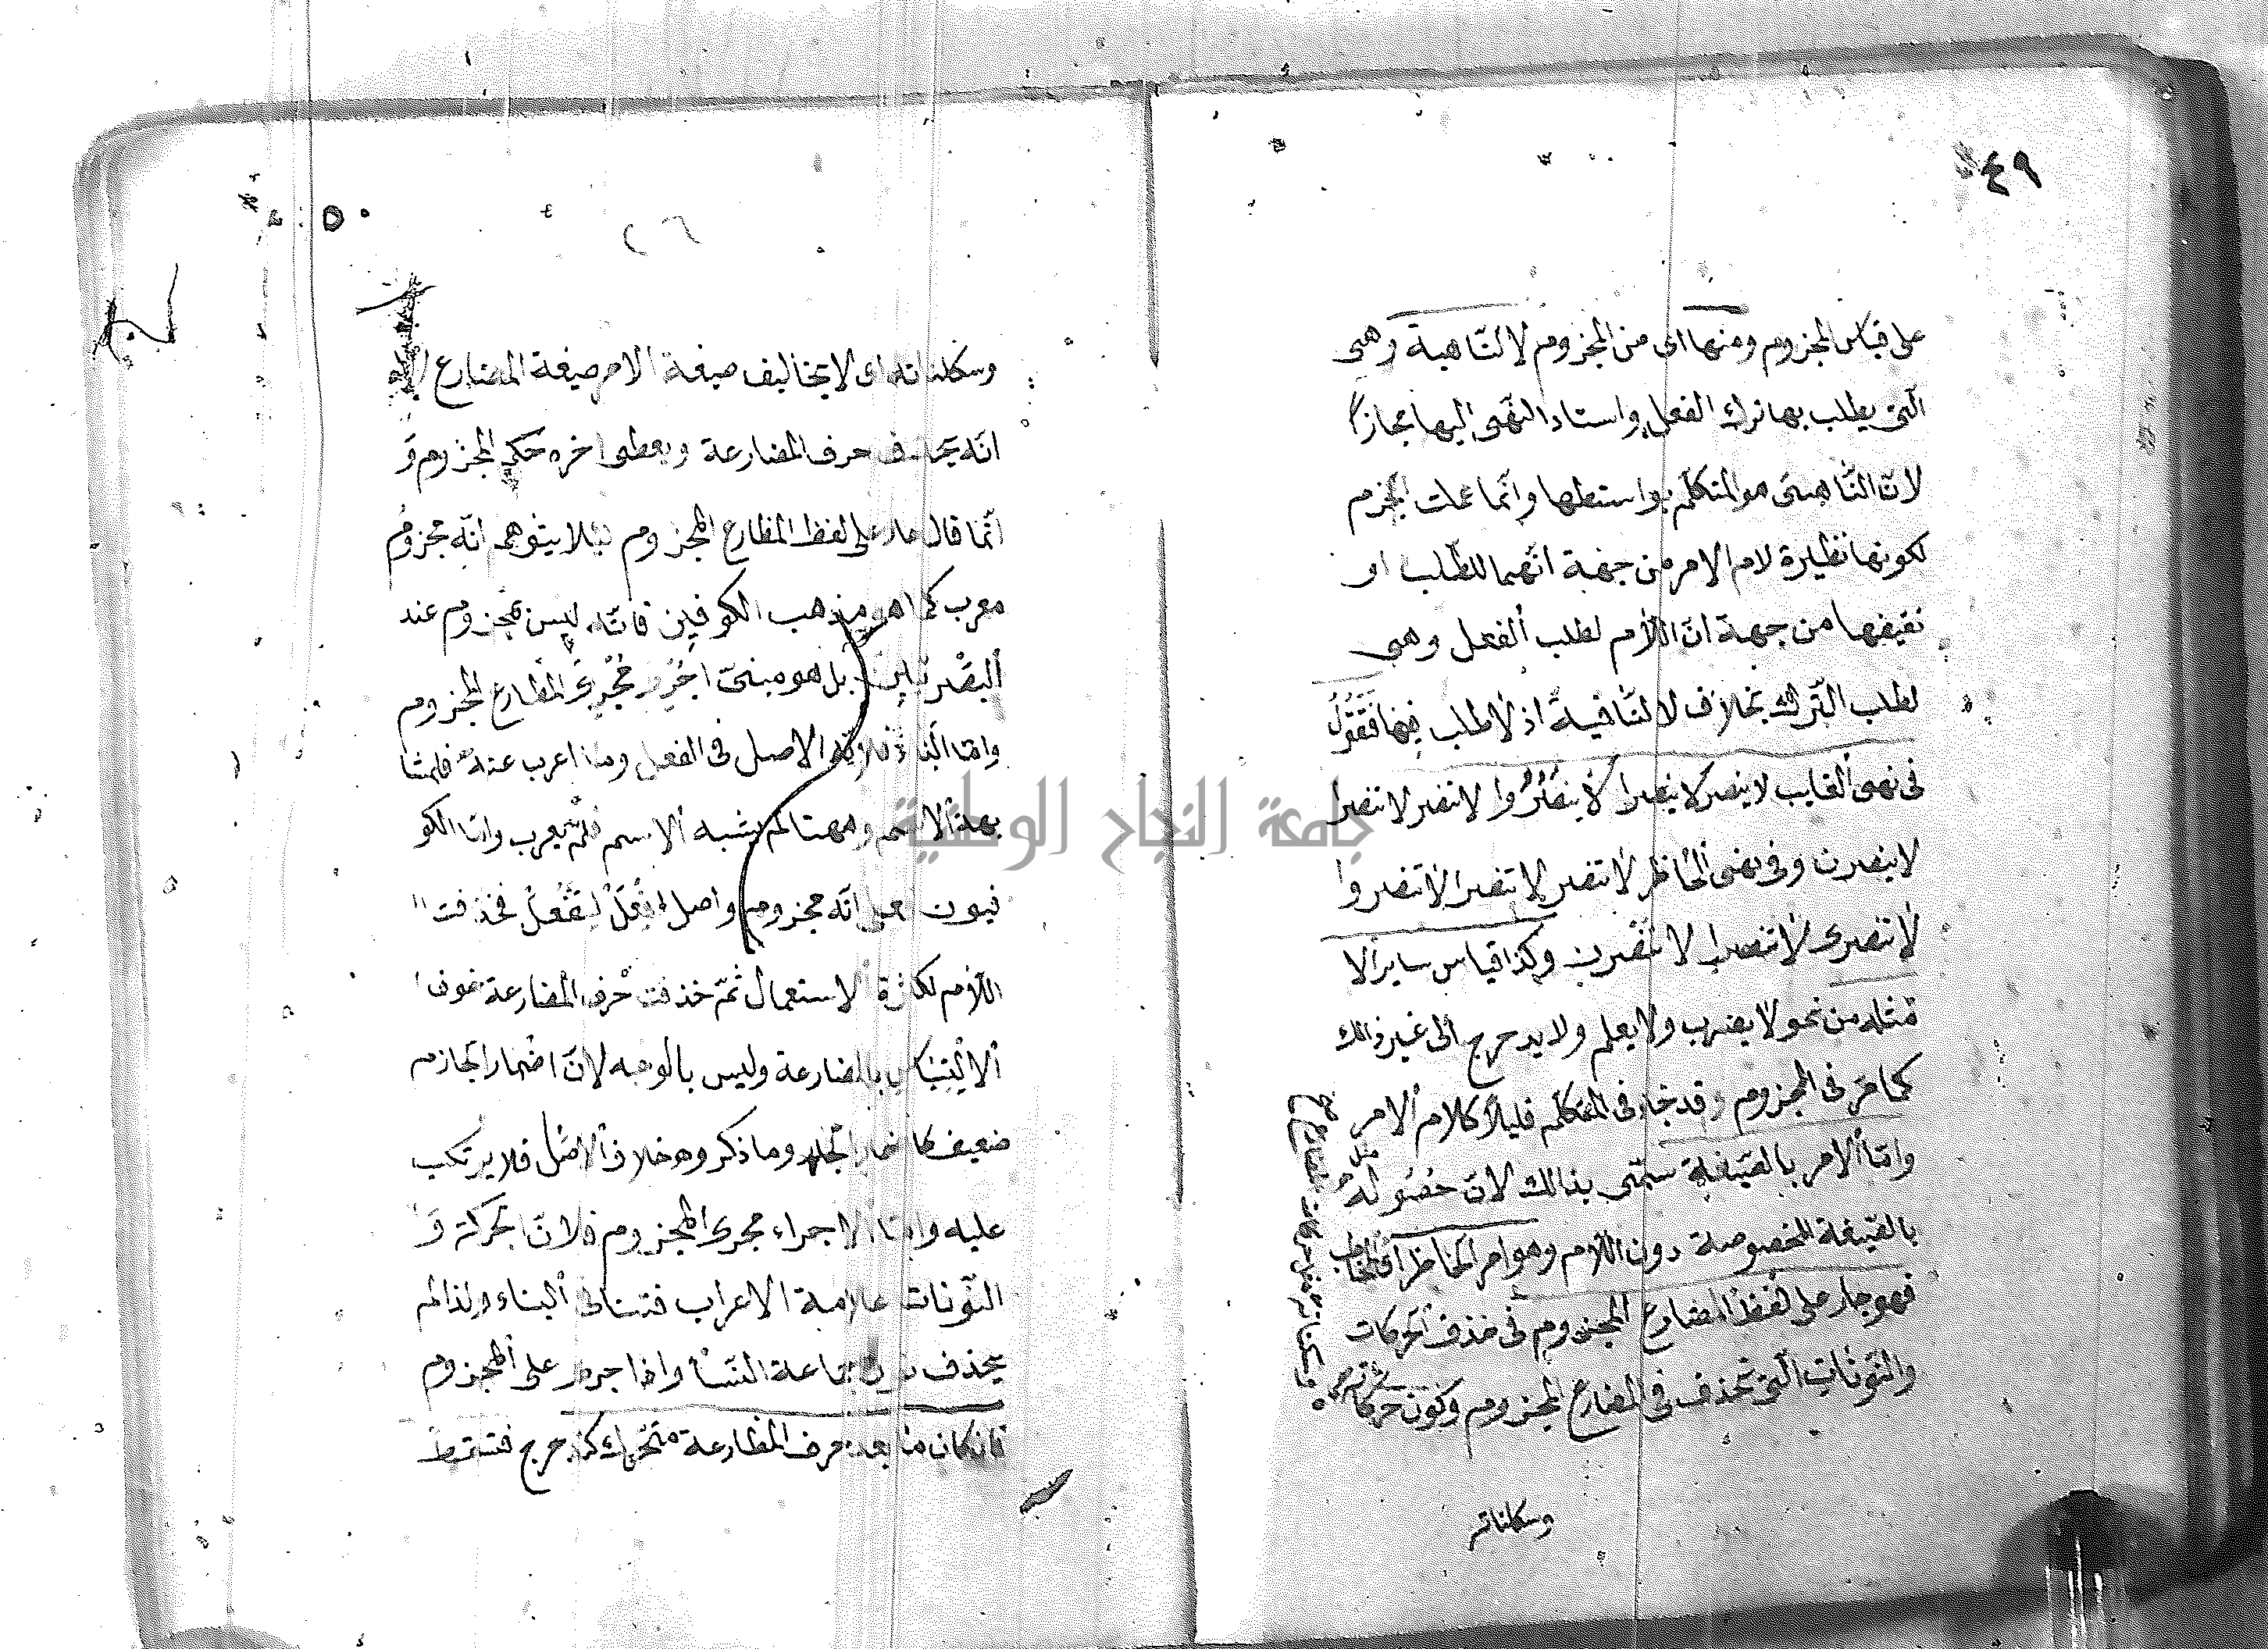 ٤٩
على قياس المجزوم ومنها اى من المجزوم لا النّاهية وهى
الّتى يطلب بها ترك الفعل واسناد النّهى اليها مجازا
لانّ النّاهى هو المتكلّم بواسطها وانّما عملت الجزم
لكونها نظيرة لام الامر من جهة انّهما للطّلب او
نقيفها من جهة انّ اللّام لطلب الفعل وهى
لطلب التّرك بخلاف لا النّافية اذ لا طلب فيها فَتَقُولُ
فى نهى الغايب لا ينصر لا ينصرا لا ينصُرُوا لا تنصر لا تنصرا
لا ينصرن وفى نهى الحاظر لا تنصر لا تنصرا لا تنصروا
لا تنصرى لا تنصرا لا تنصرن وكذا قياس ساير الا
مثله من نحو لا يضرب ولا يعلم ولا يدحرج الى غير ذالك
كما مرّ فى المجزوم وقد جاء فى المتكلّم قليلاً كلام الامر
وامّا الامر بالصّيغة سمّى بذالك لانّ حصُولهُ
بالصّيغة المخصوصة دون اللّام وهو امر الحاظر اى المخاطب
فهو جار على لفظ المضارع المجزوم فى حذف الحركات
والنّونات الّتى تحذف فى المضارع المجزوم وكون حركاته
وسكناته
٥٠
٢٦
وسكناته اى لا يخاليف صيغة الامر صيغة المضارع الا
انّه يحذف حرف المضارعة ويعطى اخره حكم المجزوم وَ
انّما قال جار على لفظ المظارع المجزوم ليلا يتوهم انّه مجزوم
معرب كما هو مذهب الكوفين فانّه ليس بمجزوم عند
البصْريين بل هو مبنىّ اجْرِىَ مُجْرىَ المظارع المجزوم
وامّا البناء فلانّه الاصل فى الفعل وما اعرب عنه فلمشا
بهة الاسم وهها لم يشبه الاسم فلم يعرب وامّا الكو
فيون على انّه مجزوم واصل افْعَلْ لِتَفْعَلْ فحذفت
اللّام لكثرة الاستعمال ثمّ حذفت حرف المضارعة خوف
الالْتِبَاس بالمضارعة وليس بالوجه لانّ اضمار الجازم
ضعيف كاضمار الجار وما ذكروه خلاف الاصْل فلا يرتكب
عليه وامّا الاجراء مجرى المجزوم فلانّ الحركة وَ
النّونات علامة الاعراب فتنافى البناء ولذالم
يحذف نون جماعة النّسأ واذا جرى على المجزوم
فان كان ما بعد حرف المظارعة متحرّك كيدحرج فتسقط
جامعة النجاح الوطنية